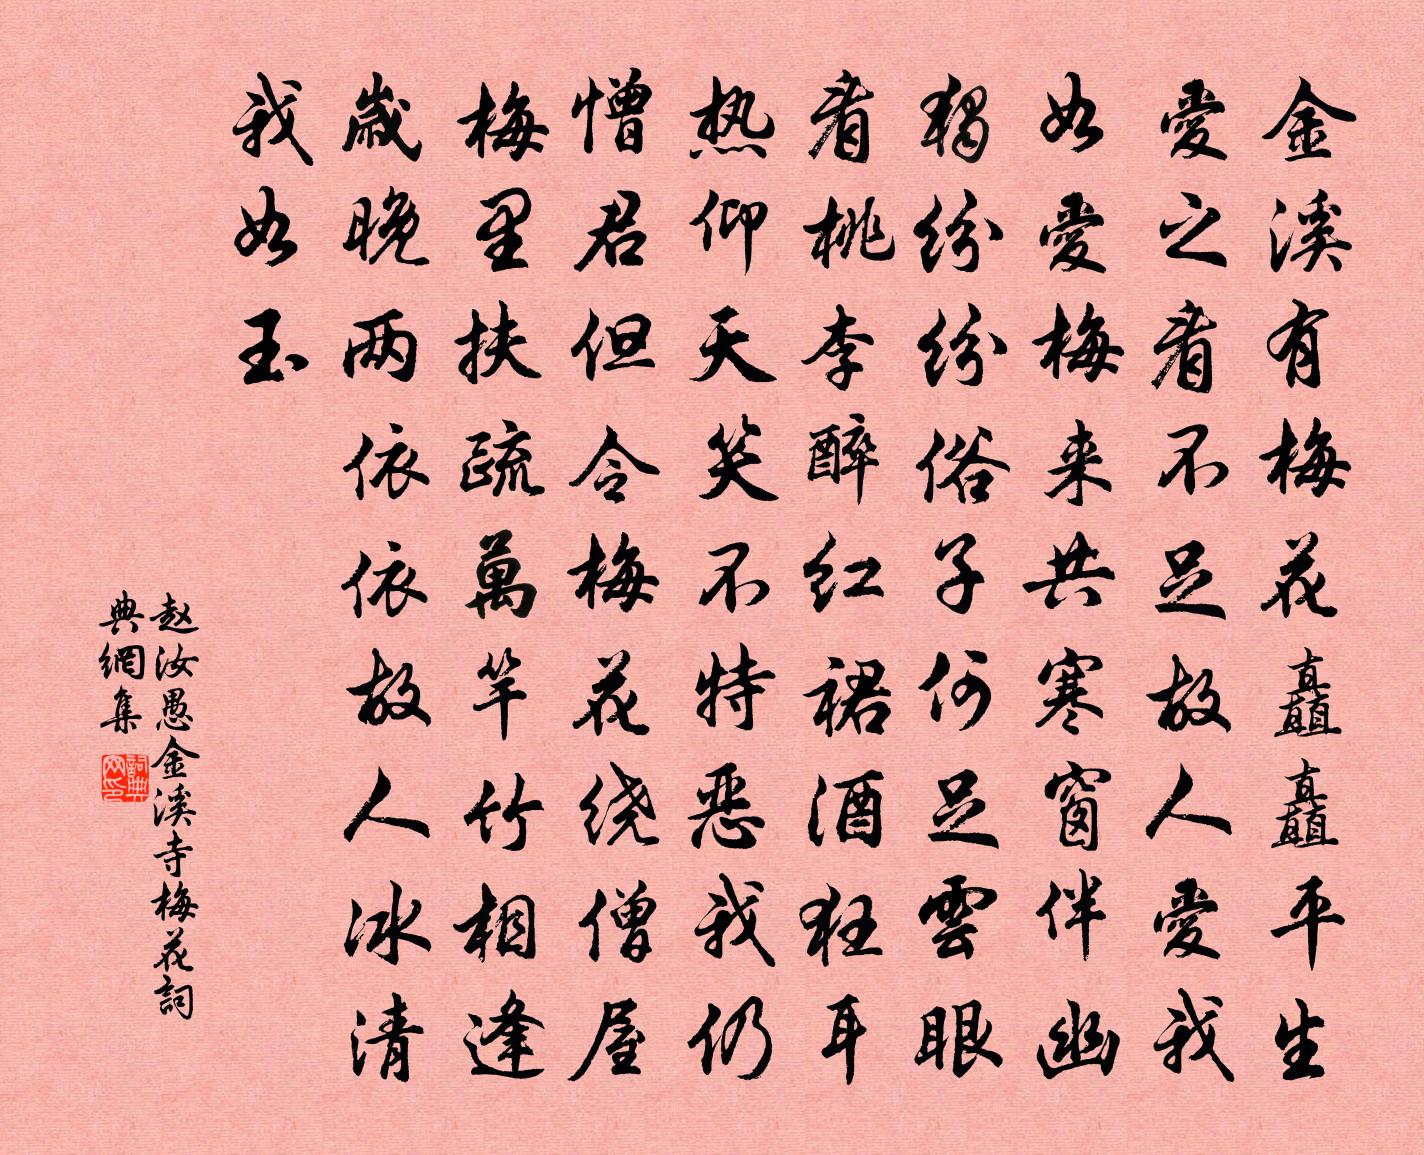 金溪有梅花矗矗平生
愛之看不足故人愛我
如愛梅来共寒窗伴幽
獨纷纷俗子何足雲眼
看桃李醉红裙酒狂耳
热仰天笑不特恶我仍
憎君但令梅花绕僧屋
梅里扶疏萬竿竹相逢
歲晚两依依故人冰清
我如玉
赵汝愚金溪寺梅花詞
典網集
詞典
网印